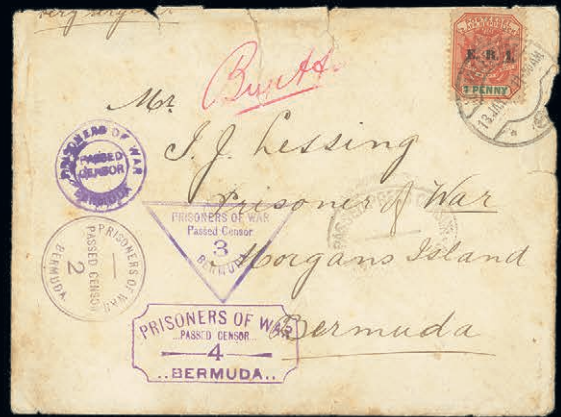 very urgent
Burtt
E. R. I.
1 PENNY
Mr.
I. J. Lessing
Prisoner of War
Morgans Island
Bermuda
PRISONERS OF WAR
PASSED
CENSOR
BERMUDA
PRISONERS OF WAR
Passed Censor
3
BERMUDA
PRISONERS OF WAR
1
PASSED CENSOR
2
BERMUDA
PRISONERS OF WAR
..PASSED CENSOR..
4
..BERMUDA..
PASSED PRESS CENSOR
13 JAN